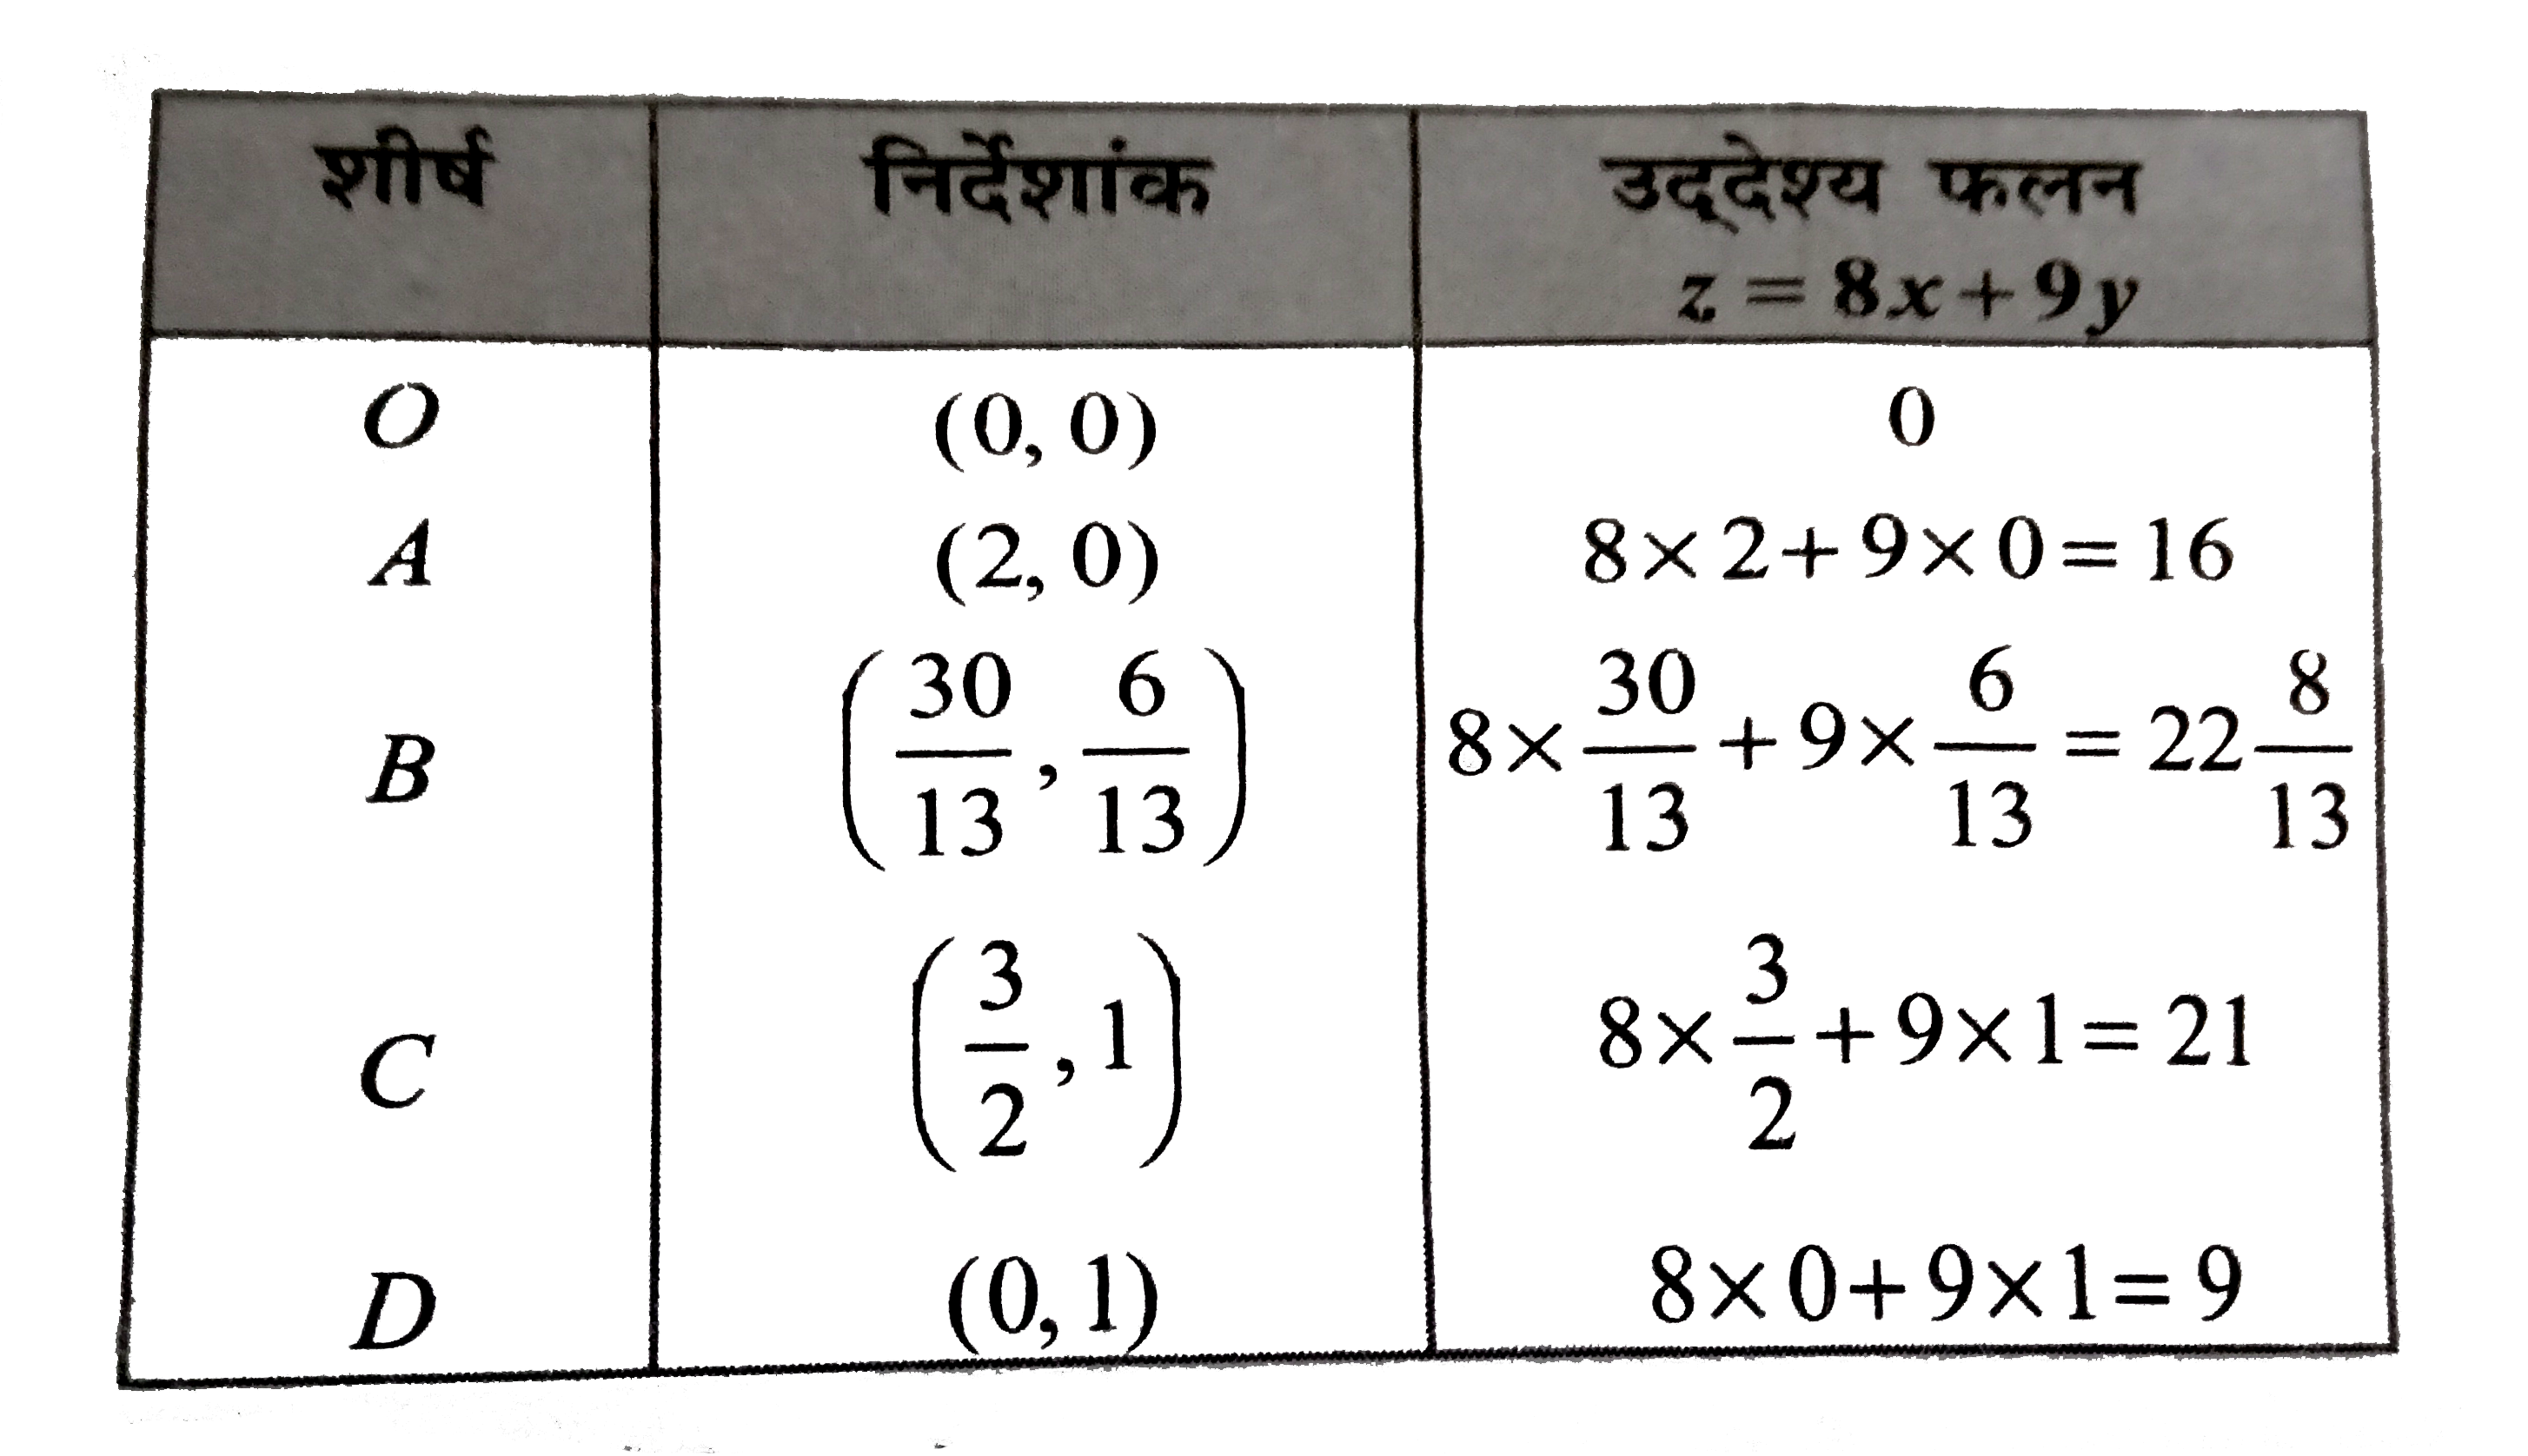 शीर्ष निर्देशांक उद्देश्य फलन
z = 8x + 9y
O (0, 0) 0
A (2, 0) 8 × 2 + 9 × 0 = 16
B (30/13, 6/13) 8 × 30/13 + 9 × 6/13 = 22 8/13
C (3/2, 1) 8 × 3/2 + 9 × 1 = 21
D (0, 1) 8 × 0 + 9 × 1 = 9